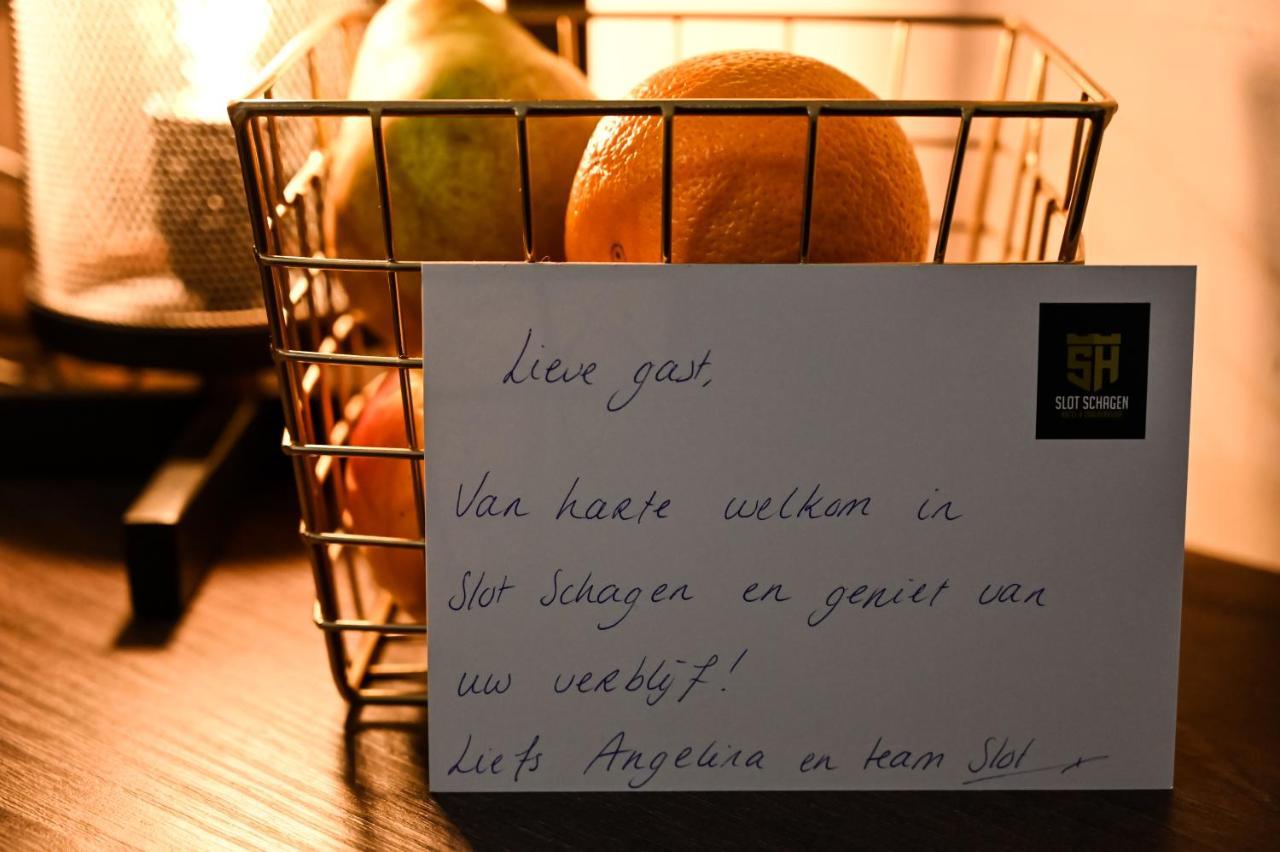 Lieve gast,
SH
SLOT SCHAGEN
Van harte welkom in
Slot Schagen en geniet van
uw verblijf!
Liefs Angelina en team Slot x